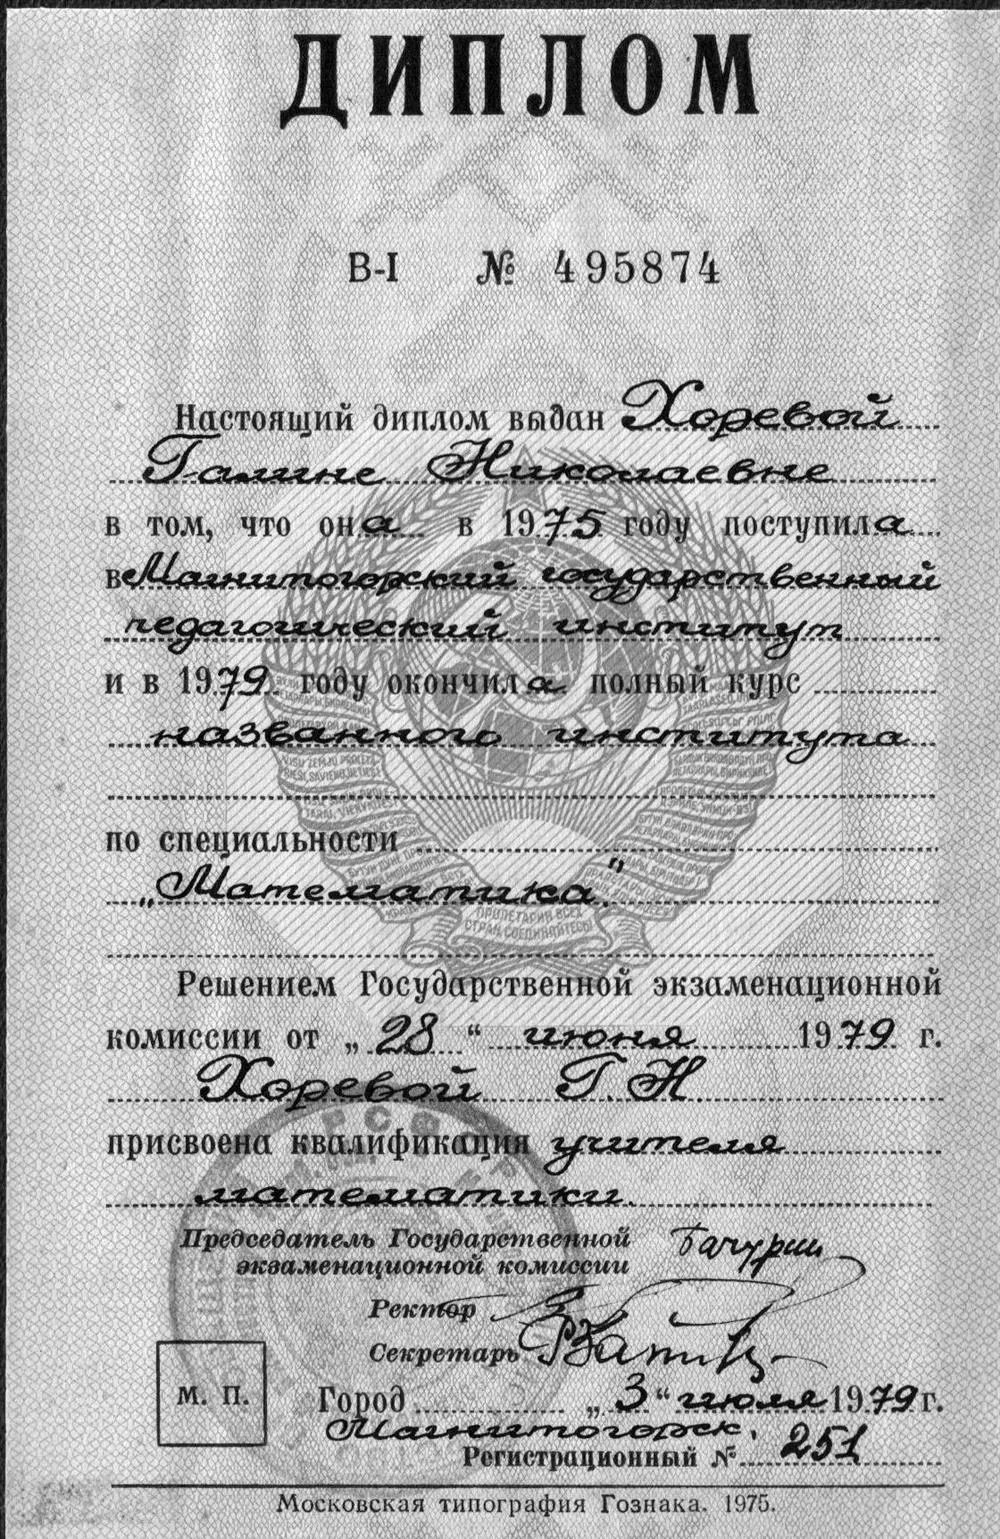 ДИПЛОМ
В-I № 495874
Настоящий диплом выдан Хоревой
Галине Николаевне
в том, что она в 1975 году поступила
в Магнитогорский государственный
педагогический институт
и в 1979 году окончила полный курс
названного института
по специальности
„Математика"
Решением Государственной экзаменационной
комиссии от „28“ июня 1979 г.
Хоревой Г.Н
присвоена квалификация учителя
математики.
Председатель Государственной
экзаменационной комиссии
Ректор
Секретарь
М. П.
Город „3“ июля 1979 г.
Магнитогорск.
Регистрационный № 251
Московская типография Гознака. 1975.
ПРОЛЕТАРИИ ВСЕХ
СТРАН, СОЕДИНЯЙТЕСЬ!